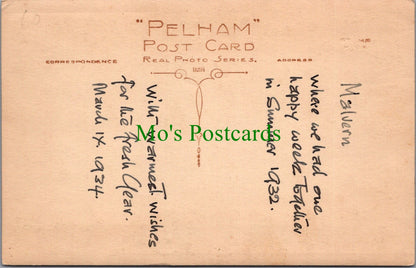 "PELHAM"
POST CARD
REAL PHOTO SERIES.
CORRESPONDENCE
ADDRESS
Malvern
where we had one
happy week together
in Summer 1932.
With warmest wishes
for the fresh year.
March 1934.
Mo's Postcards